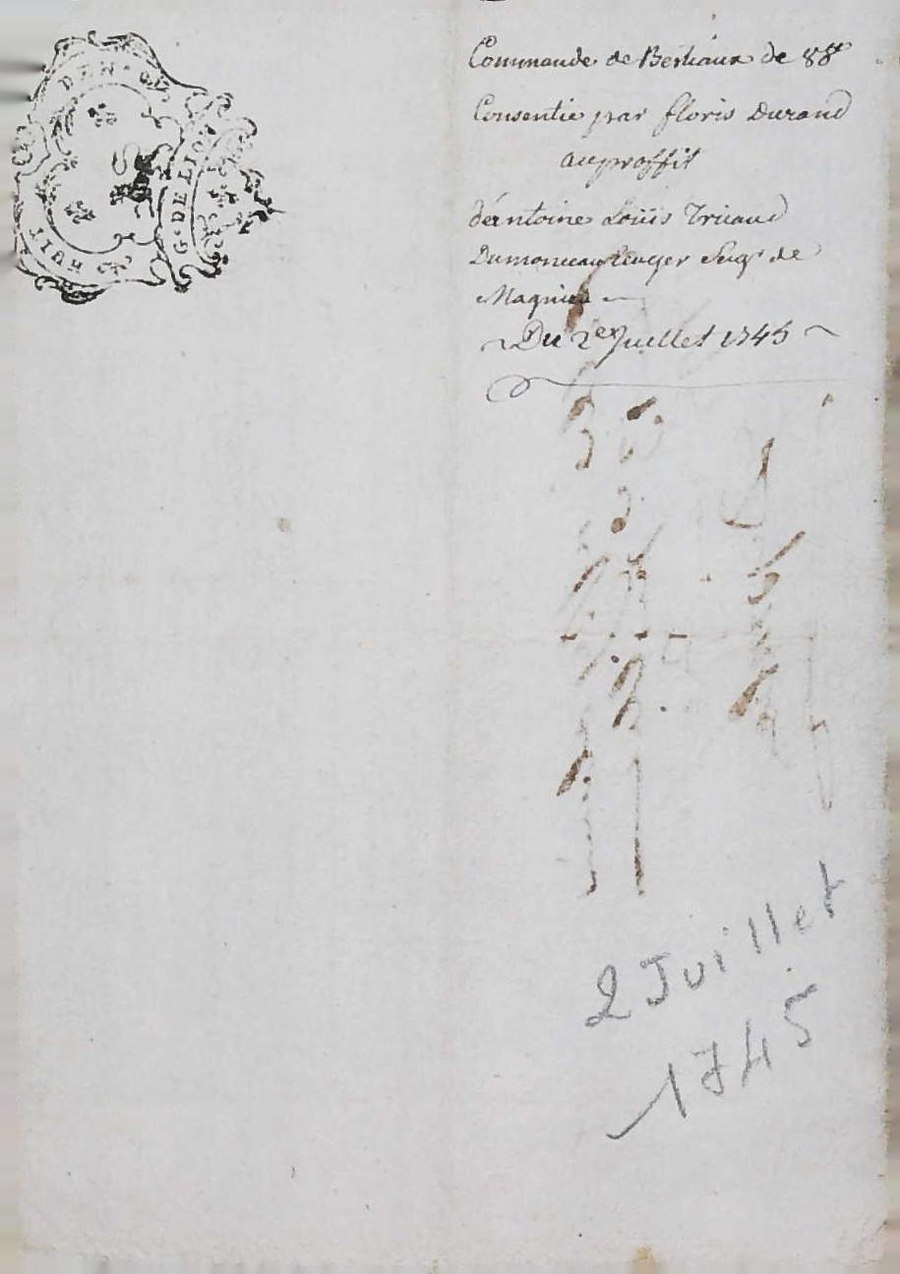 HUIT DEN.
G. DE LIO
Commande de Bestiaux de 88#
Consentie par floris Durand
au proffit
d'antoine Loüis Tricaud
Dumonceau Seigr de
Magnieu
Du 2e Juillet 1745
2 Juillet
1745